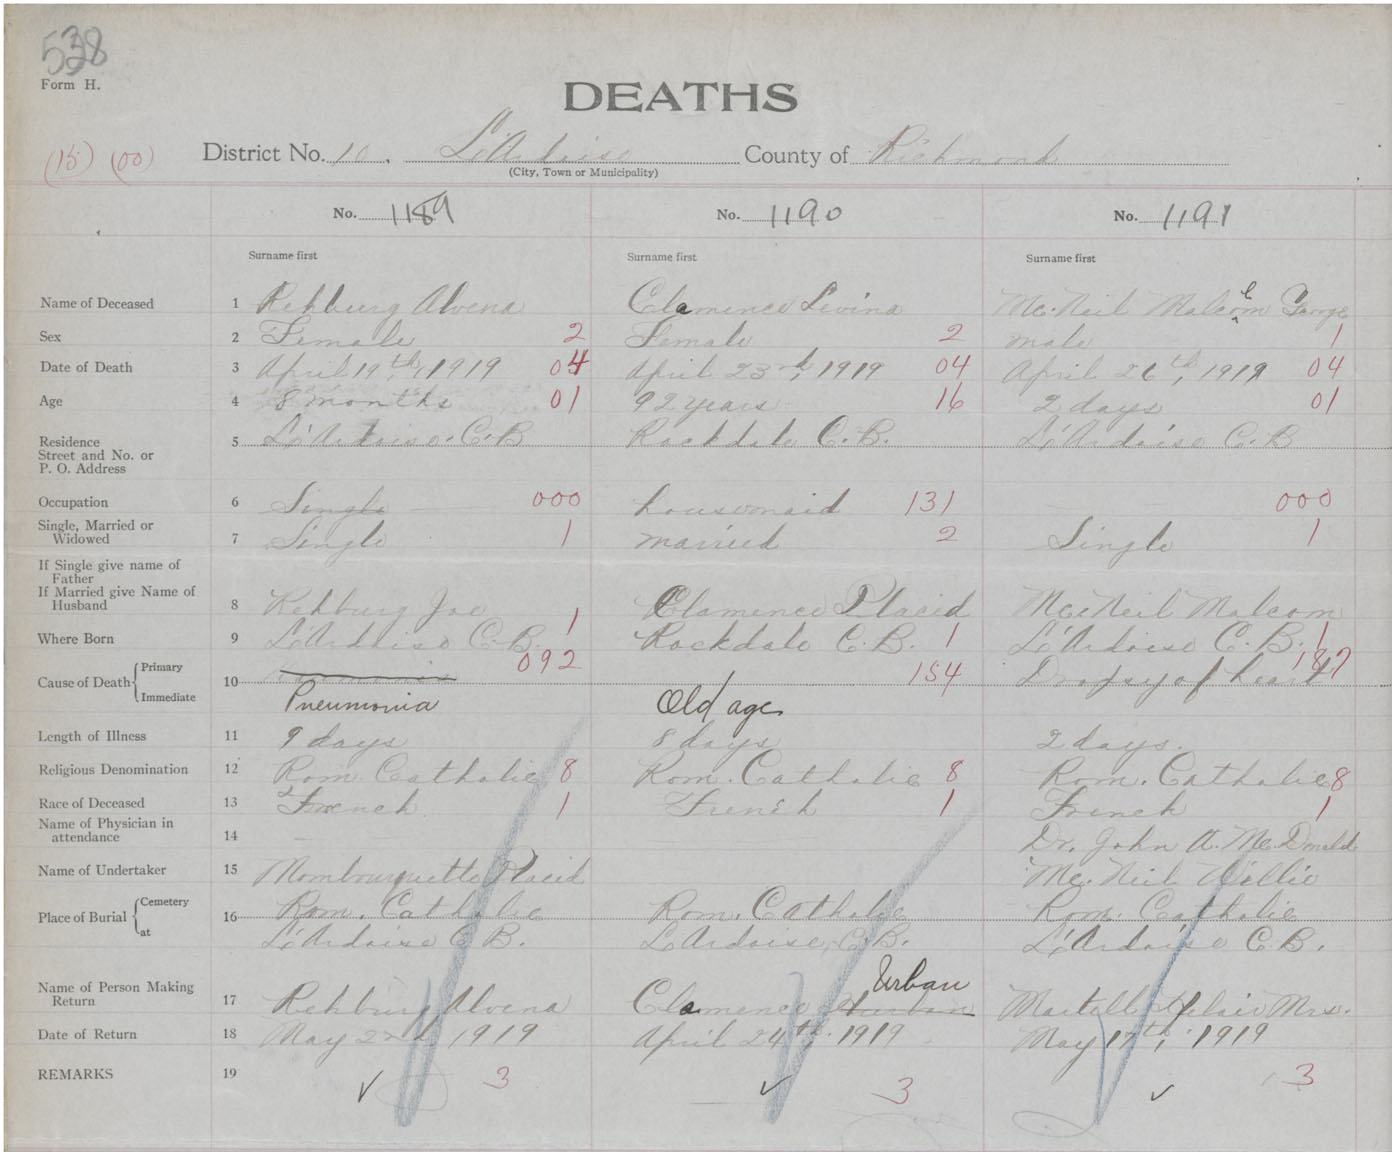 538
Form H.
DEATHS
(15) (00) District No. 10, L'Ardoise County of Richmond
(City, Town or Municipality)
No. 1189 No. 1190 No. 1191
Surname first Surname first Surname first
Name of Deceased 1 Rehburg Alvena Clamence Levina Mc.Neil Malcom George
Sex 2 Female 2 Female 2 male 1
Date of Death 3 April 19th, 1919 04 April 23rd, 1919 04 April 26th, 1919 04
Age 4 8 months 01 92 years 16 2 days 01
Residence 5 L'Ardoise. C.B Rockdale C.B. L'Ardoise C.B
Street and No. or
P. O. Address
Occupation 6 Single 000 housemaid 131 000
Single, Married or
Widowed 7 Single 1 married 2 Single 1
If Single give name of
Father
If Married give Name of
Husband 8 Rehburg Joe 1 Clamence Placid Mc.Neil Malcom
Where Born 9 L'Ardoise C.B. Rockdale C.B. 1 L'Ardoise C.B. 1
Cause of Death Primary 10 092 154 Dropsy of heart 187
Immediate Pneumonia Old age
Length of Illness 11 9 days 8 days 2 days.
Religious Denomination 12 Rom. Catholic 8 Rom. Catholic 8 Rom. Catholic 8
Race of Deceased 13 French 1 French 1 French 1
Name of Physician in
attendance 14 Dr. John A. Mc.Donald
Name of Undertaker 15 Mombourquette Placid Mc.Neil Willie
Place of Burial Cemetery 16 Rom. Catholic Rom. Catholic Rom. Catholic
at L'Ardoise C.B. L'Ardoise, C.B. L'Ardoise C.B.
Name of Person Making
Return 17 Rehburg Alvena Clamence Urban Martell Mrs.
Date of Return 18 May 2nd, 1919 April 24th. 1919 May 17th, 1919
REMARKS 19 ✓ 3 ✓ 3 ✓ 3